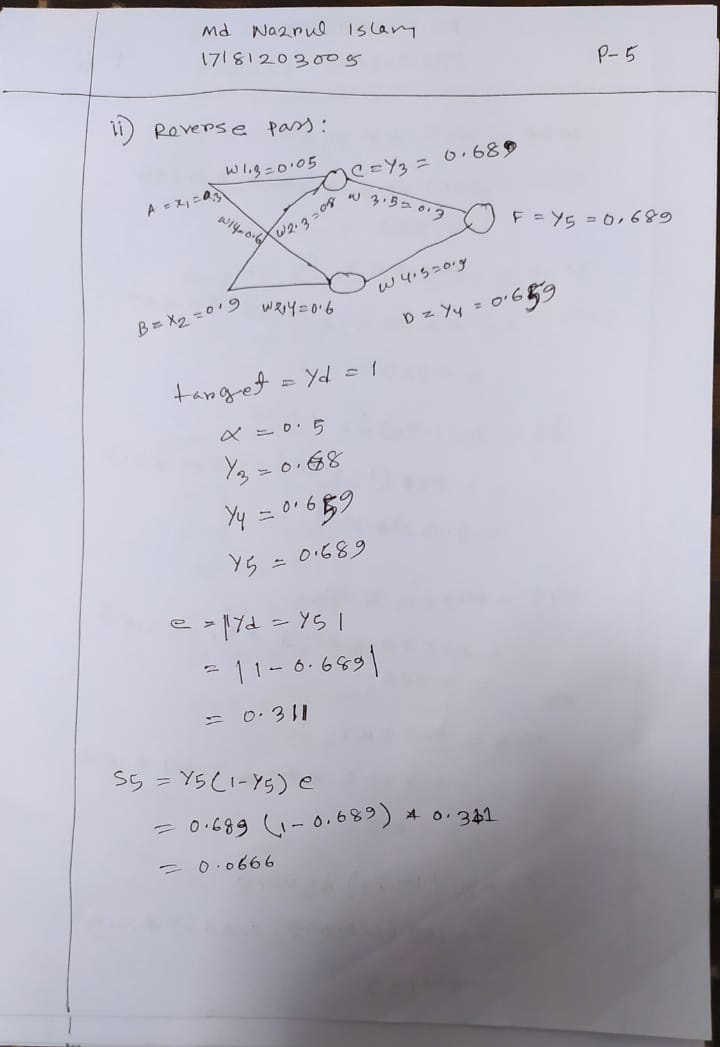 Md Nazrul Islam
17181203005
P-5
ii) Reverse pass:
W1.3=0.05
C=Y3 = 0.689
A = x1 = 0.3
W14=0.6
W2.3=0.8
W3.5=0.3
F = Y5 = 0.689
B = X2 = 0.9
W2,4=0.6
W4.5=0.9
D = Y4 = 0.659
target = Yd = 1
α = 0.5
Y3 = 0.68
Y4 = 0.659
Y5 = 0.689
e = |Yd = Y5|
= |1 - 0.689|
= 0.311
S5 = Y5(1-Y5) e
= 0.689 (1-0.689) * 0.311
= 0.0666